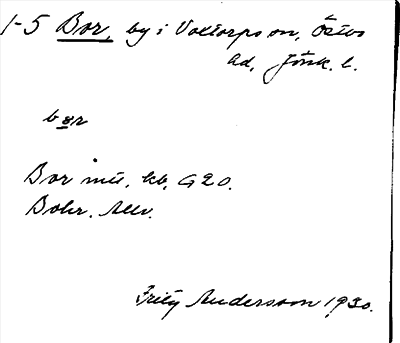 1-5 Bor, by i Voxtorps sn, Östbo
hd, Jönk. l.
bɷr
Bor mtl, kb, G 20.
Bohr. Allv.
Fritz Andersson 1930.